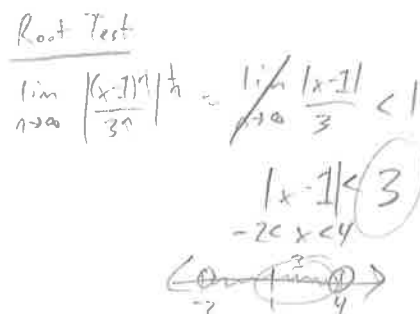 Root Test
lim n→∞ |(x-1)^n / 3^n|^(1/n) = lim n→∞ |x-1| / 3 < 1
|x-1| < 3
-2 < x < 4
-2 1 3 4